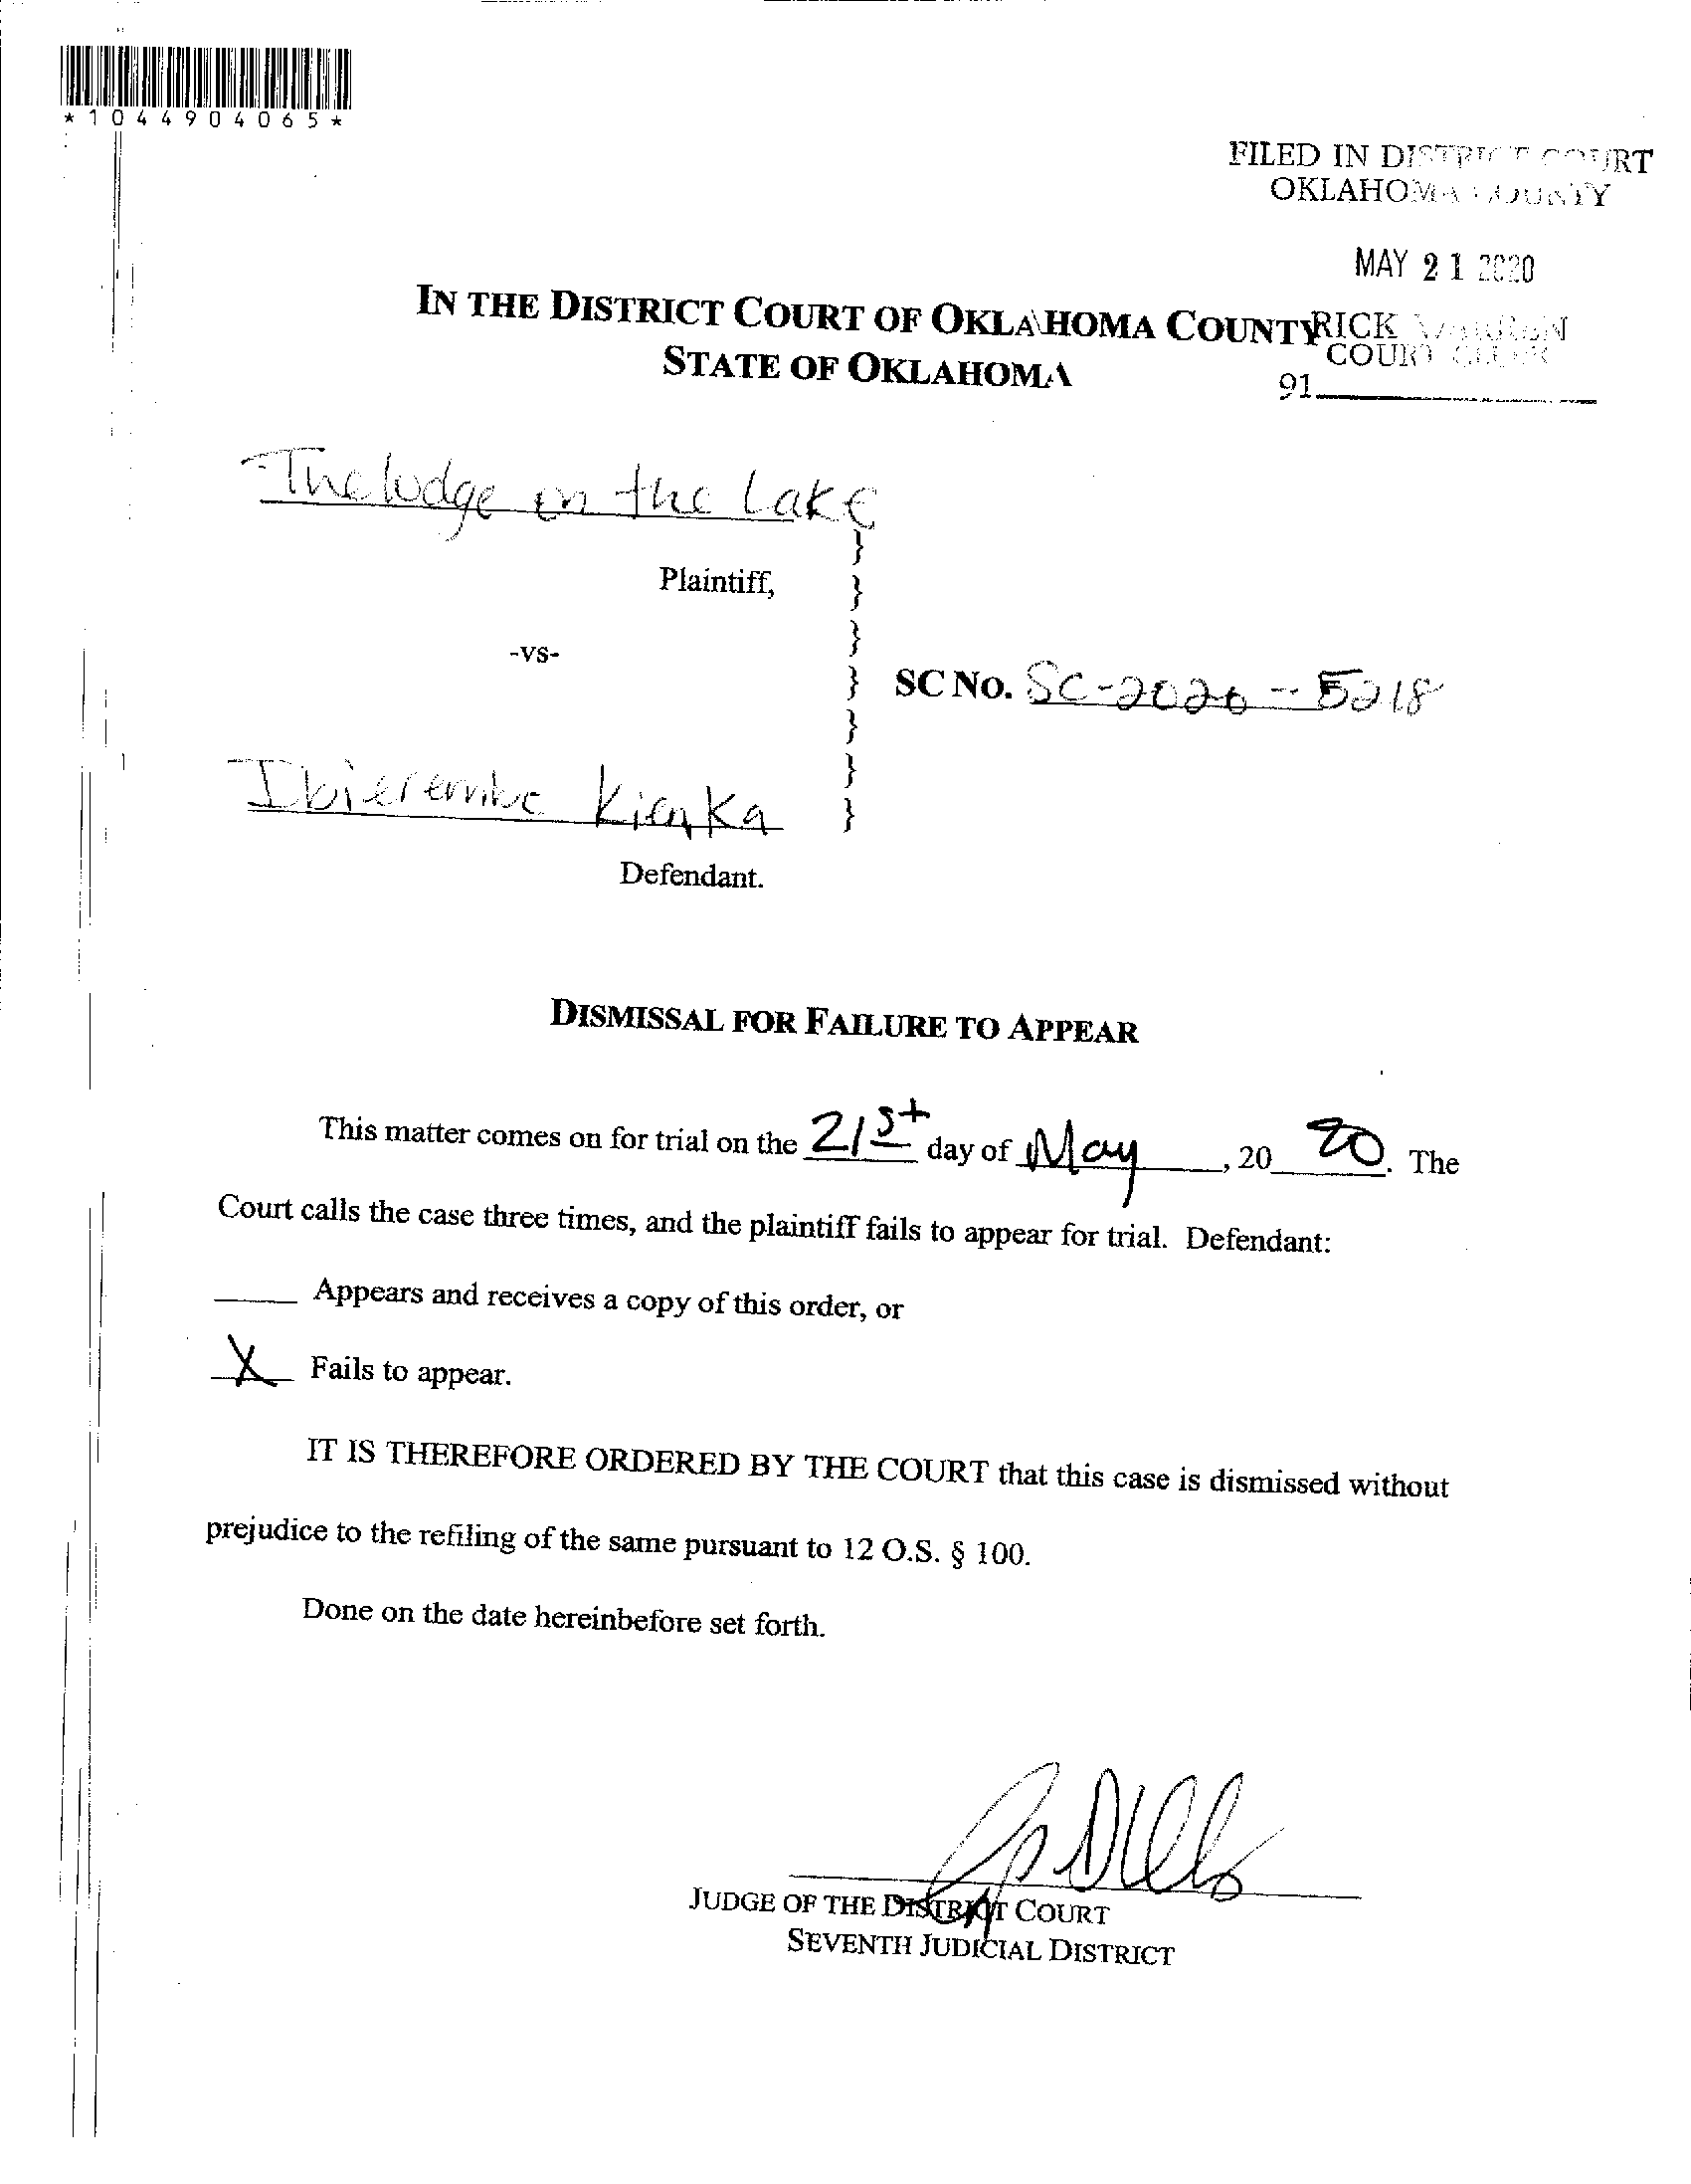 *1044904065*
FILED IN DISTRICT COURT
OKLAHOMA COUNTY
MAY 21 2020
IN THE DISTRICT COURT OF OKLAHOMA COUNTY
RICK WARREN
STATE OF OKLAHOMA
COURT CLERK
91
The lodge on the Lake
}
Plaintiff,
}
}
-vs-
}
SC No. SC-2020-5218
}
}
Kienka
}
Defendant.
DISMISSAL FOR FAILURE TO APPEAR
This matter comes on for trial on the 21st day of May, 20 20. The
Court calls the case three times, and the plaintiff fails to appear for trial. Defendant:
____ Appears and receives a copy of this order, or
X Fails to appear.
IT IS THEREFORE ORDERED BY THE COURT that this case is dismissed without
prejudice to the refiling of the same pursuant to 12 O.S. § 100.
Done on the date hereinbefore set forth.
JUDGE OF THE DISTRICT COURT
SEVENTH JUDICIAL DISTRICT